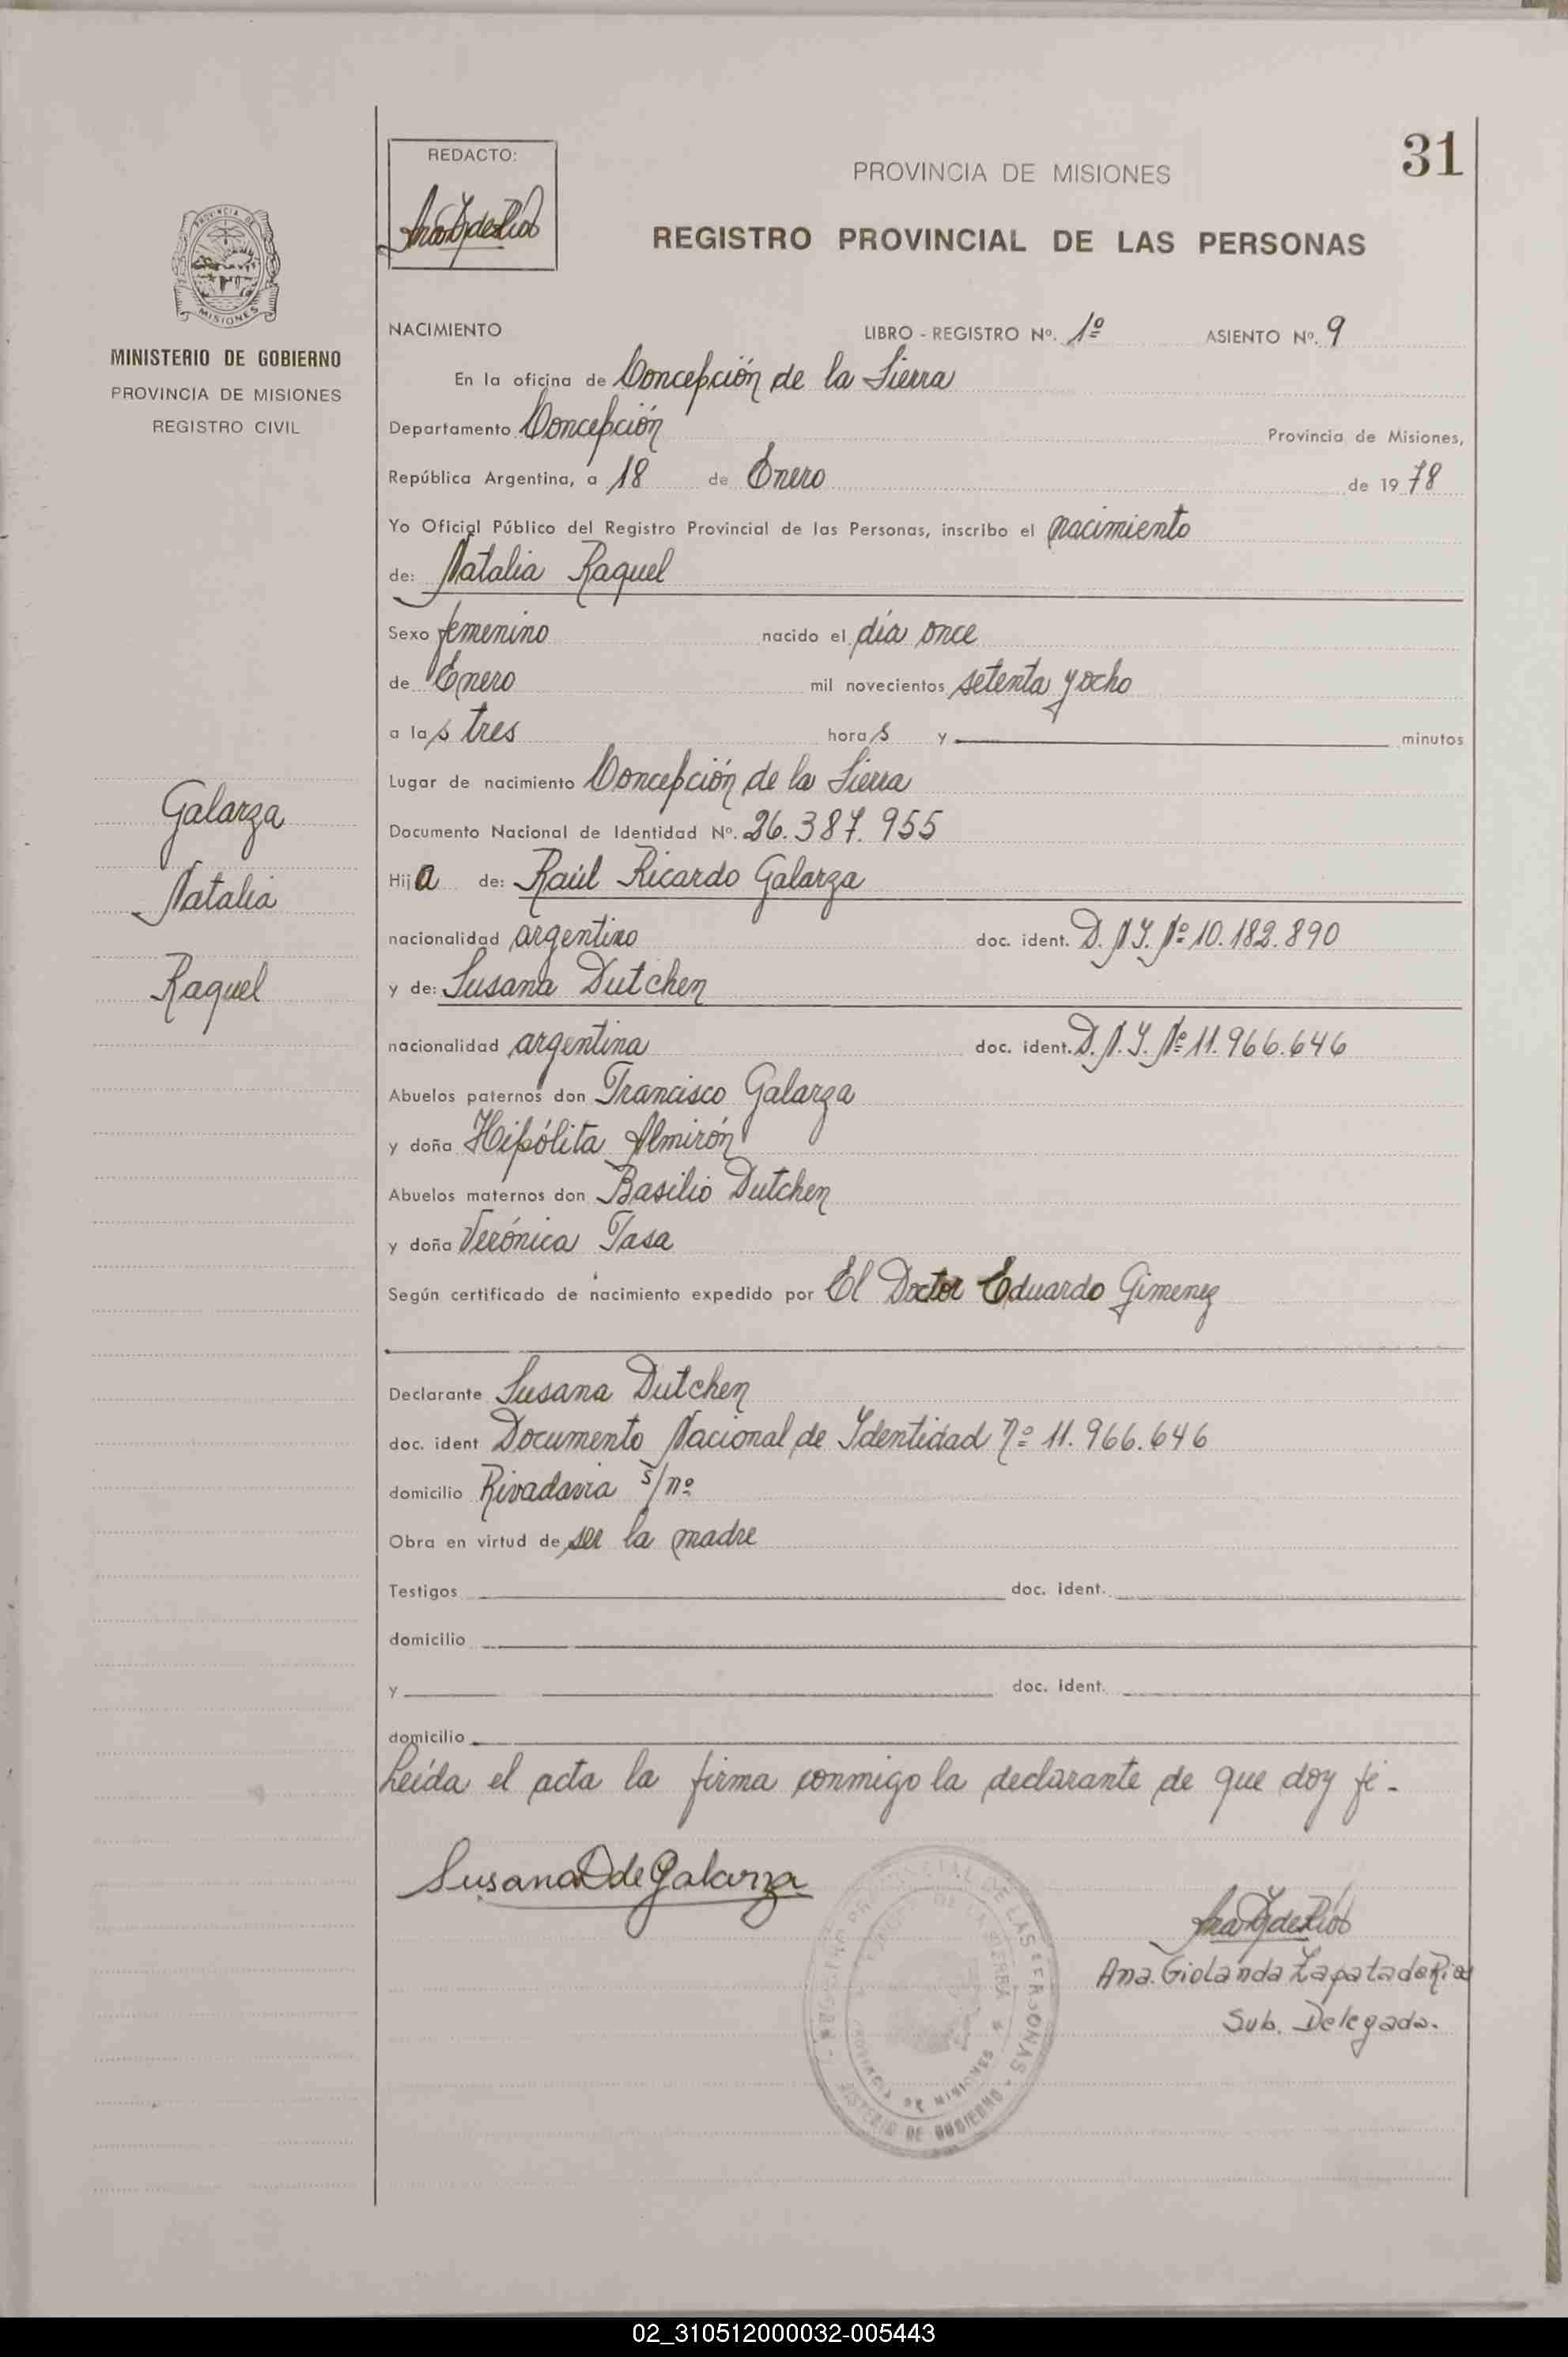 31
REDACTO:
PROVINCIA DE MISIONES
REGISTRO PROVINCIAL DE LAS PERSONAS
PROVINCIA DE
MISIONES
MINISTERIO DE GOBIERNO
PROVINCIA DE MISIONES
REGISTRO CIVIL
NACIMIENTO LIBRO - REGISTRO Nº. 1º ASIENTO Nº. 9
En la oficina de Concepción de la Sierra
Departamento Concepción Provincia de Misiones,
República Argentina, a 18 de Enero de 1978
Yo Oficial Público del Registro Provincial de las Personas, inscribo el nacimiento
de: Natalia Raquel
Sexo femenino nacido el día once
de Enero mil novecientos setenta y ocho
a las tres horas y minutos
Lugar de nacimiento Concepción de la Sierra
Documento Nacional de Identidad Nº. 26.387.955
Hija de: Raúl Ricardo Galarza
nacionalidad argentino doc. ident. D.N.I. Nº 10.182.890
y de: Susana Dutchen
nacionalidad argentina doc. ident. D.N.I. Nº 11.966.646
Abuelos paternos don Francisco Galarza
y doña Hipólita Almirón
Abuelos maternos don Basilio Dutchen
y doña Verónica Tasa
Según certificado de nacimiento expedido por El Doctor Eduardo Gimenez
Declarante Susana Dutchen
doc. ident Documento Nacional de Identidad nº 11.966.646
domicilio Rivadavia s/nº
Obra en virtud de ser la madre
Testigos doc. ident.
domicilio
y doc. ident.
domicilio
Leída el acta la firma conmigo la declarante de que doy fé.-
Galarza
Natalia
Raquel
Susana D de Galarza
Ana Giolanda Zapata de Rios
Sub. Delegada.
PROVINCIAL DE LAS PERSONAS
DE LA SIERRA
PROVINCIA DE MISIONES
MINISTERIO DE GOBIERNO
02_310512000032-005443